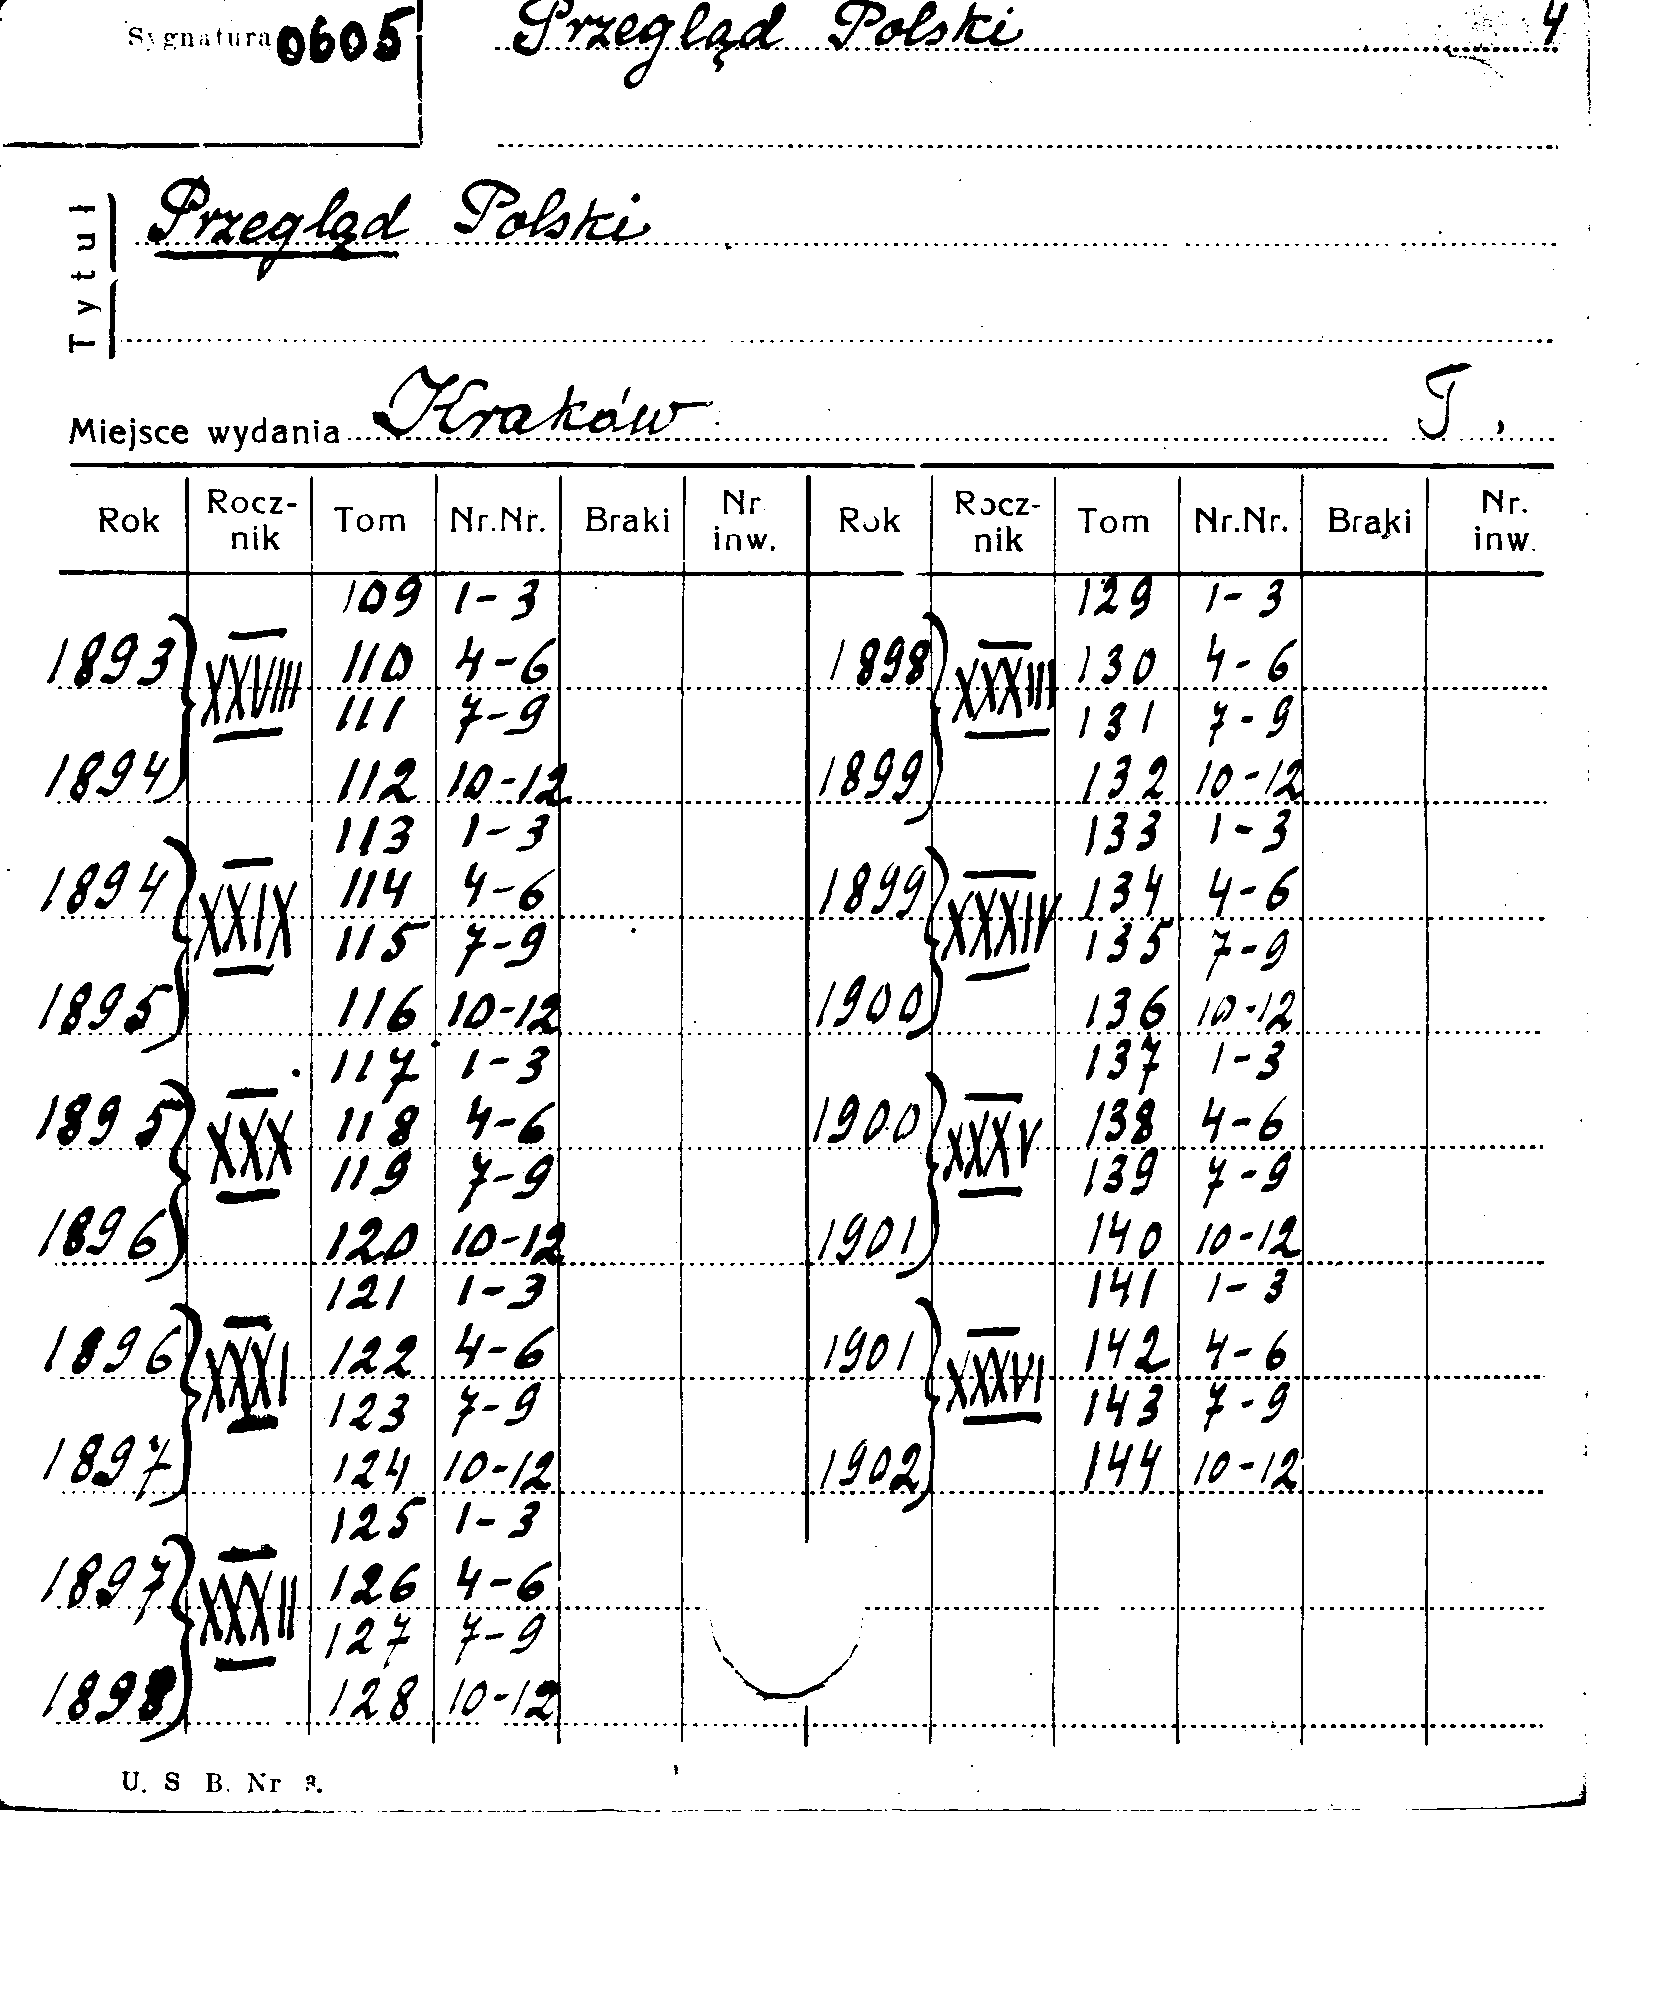 Sygnatura 0605 Przegląd Polski 4
Tytuł Przegląd Polski
Miejsce wydania Kraków T.
Rok Rocz-nik Tom Nr.Nr. Braki Nr inw. Rok Rocz-nik Tom Nr.Nr. Braki Nr. inw.
109 1-3 129 1-3
1893 XXVIII 110 4-6 1898 XXXIII 130 4-6
111 7-9 131 7-9
1894 112 10-12 1899 132 10-12
113 1-3 133 1-3
1894 XXIX 114 4-6 1899 XXXIV 134 4-6
115 7-9 135 7-9
1895 116 10-12 1900 136 10-12
117 1-3 137 1-3
1895 XXX 118 4-6 1900 XXXV 138 4-6
119 7-9 139 7-9
1896 120 10-12 1901 140 10-12
121 1-3 141 1-3
1896 XXXI 122 4-6 1901 XXXVI 142 4-6
123 7-9 143 7-9
1897 124 10-12 1902 144 10-12
125 1-3
1897 XXXII 126 4-6
127 7-9
1898 128 10-12
U. S B. Nr